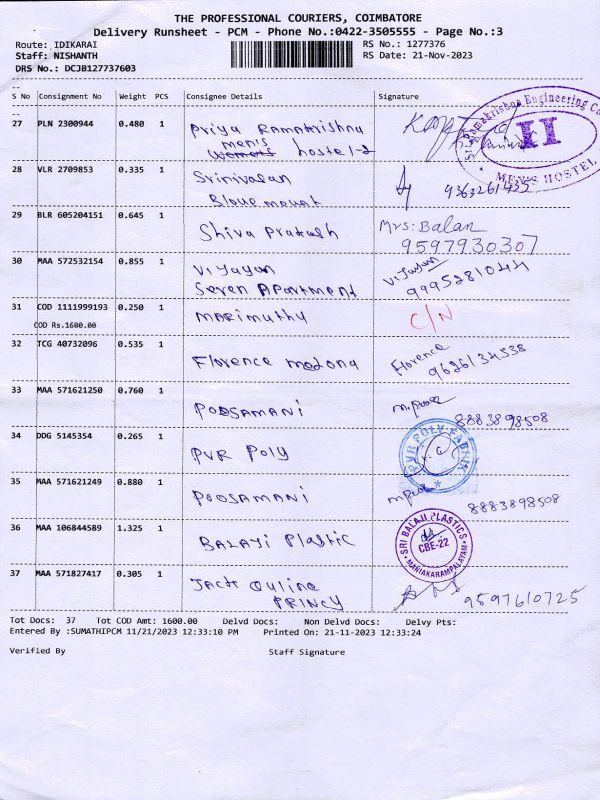 THE PROFESSIONAL COURIERS, COIMBATORE
Delivery Runsheet - PCM - Phone No.:0422-3505555 - Page No.:3
Route: IDIKARAI
RS No.: 1277376
Staff: NISHANTH
RS Date: 21-Nov-2023
DRS No.: DCJB127737603
S No Consignment No Weight PCS Consignee Details Signature
27 PLN 2300944 0.480 1 Priya Ramakrishna
men's
womens hostel-2
Sri Ramakrishna Engineering Co
II
MEN'S HOSTEL
28 VLR 2709853 0.335 1 Srinivasan
Bloue mount
9363261435
29 BLR 605204151 0.645 1 Shiva Prakash
Mrs: Balan
9597930307
30 MAA 572532154 0.855 1 Vijayan
Seven Apartment
Vijayan
9995281044
31 COD 1111999193 0.250 1 Marimuthu
C/N
COD Rs.1600.00
32 TCG 40732096 0.535 1
Florence madona
Florence
9626134538
33 MAA 571621250 0.760 1
POOSAMANI
8883898508
34 DDG 5145354 0.265 1
PVR Poly
PVR POLY FABRIK
35 MAA 571621249 0.880 1
POOSAMANI
8883898508
36 MAA 106844589 1.325 1
Balaji Plastic
SRI BALAJI PLASTICS
CBE-22
MANIAKARAMPALAYAM
37 MAA 571827417 0.305 1 Jack Quline
PRINCY
9597610725
Tot Docs: 37 Tot COD Amt: 1600.00 Delvd Docs: Non Delvd Docs: Delvy Pts:
Entered By :SUMATHIPCM 11/21/2023 12:33:10 PM Printed On: 21-11-2023 12:33:24
Verified By Staff Signature